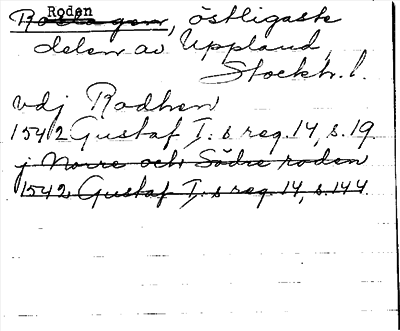 Roden
Roslagen, östligaste
delen av Uppland,
Stockh. l.
vdj Rodhen
1542 Gustaf I:s reg. 14, s. 19.
j Norre och Södre roden
1542 Gustaf I:s reg. 14, s. 144.